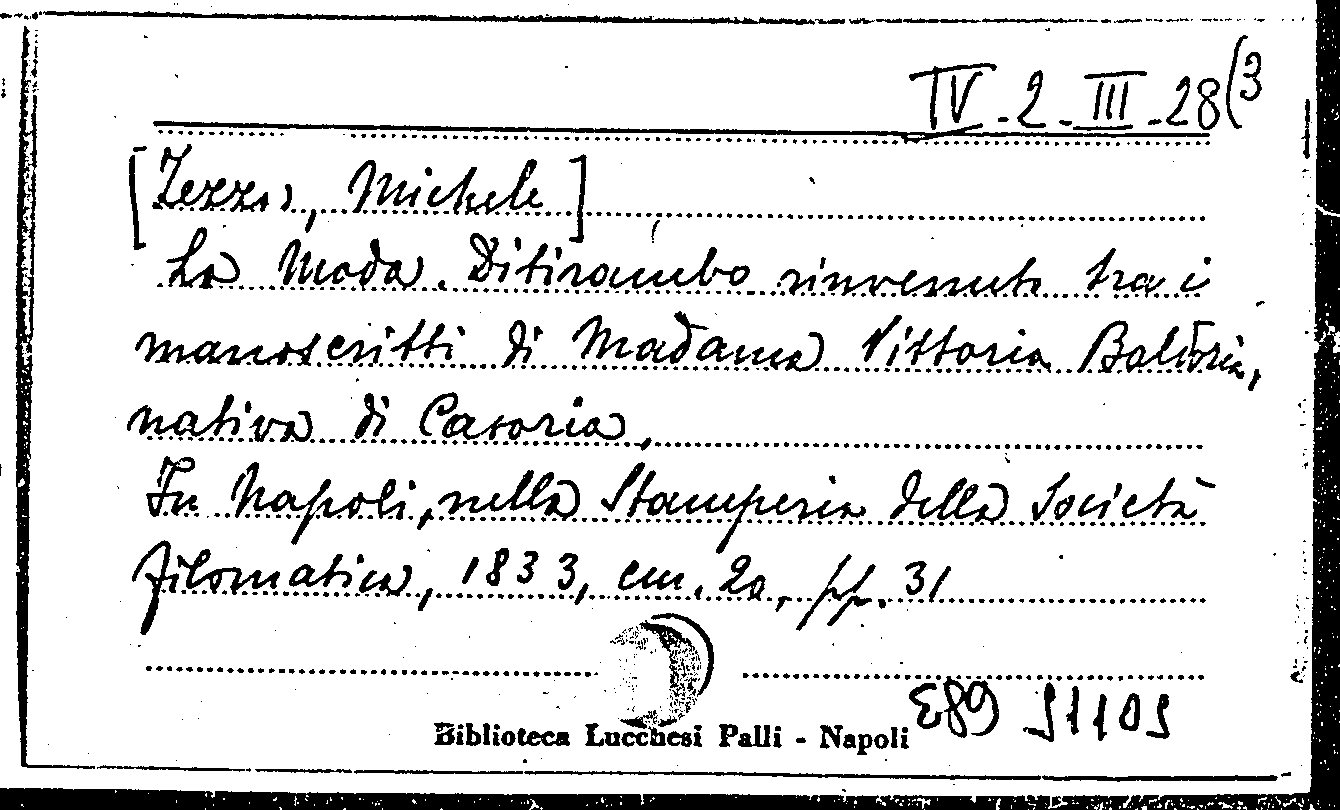 IV-2-III-28(3
[Zezza, Michele]
La Moda. Ditirambo rinvenuto tra i
manoscritti di Madama Vittoria
nativa di Casoria,
In Napoli, nella Stamperia della Società
filomatica, 1833, cm. 20, pp. 31
Biblioteca Lucchesi Palli - Napoli